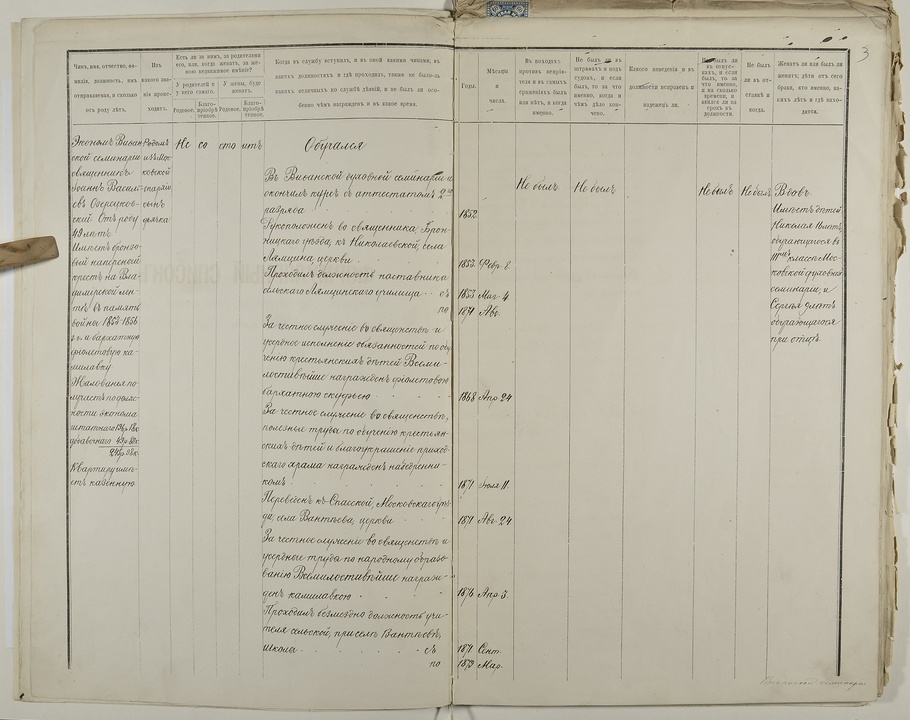 3
Чинъ, имя, отчество, фа-
милія, должность, имъ
отправляемая, и сколько
отъ роду лѣтъ.
Изъ
какого зва-
нія проис-
ходитъ.
Есть ли за нимъ, за родителями
его, или, когда женатъ, за же-
ною недвижимое имѣніе?
У родителей и
у него самаго.
У жены, буде
женатъ.
Родовое.
Благо-
пріобрѣ
тенное.
Родовое.
Благо-
пріобрѣ
тенное.
Когда въ службу вступилъ, и въ оной какими чинами, въ
какихъ должностяхъ и гдѣ проходилъ, также не было-ль
какихъ отличныхъ по службѣ дѣяній, и не былъ ли осо-
бенно чѣмъ награжденъ и въ какое время.
Годы.
Мѣсяцы
и
числа.
Въ походахъ
противъ непрія-
теля и въ самыхъ
сраженіяхъ былъ
или нѣтъ, и когда
именно.
Не былъ ли въ
штрафахъ и подъ
судомъ, и если
былъ, то за что
именно, когда и
чѣмъ дѣло кон-
чено.
Какого поведенія и въ
должности исправенъ и
надеженъ ли.
въ отпус-
кахъ, и если
былъ, то на
сколько
времени, и
явился ли на
срокъ въ
должность.
Не былъ
ли въ от-
ставкѣ и
когда.
Женатъ ли или былъ ли
женатъ; дѣти отъ сего
брака, кто именно, ка-
кихъ лѣтъ и гдѣ нахо-
дятся.
Экономъ Виѳан-
ской семинаріи
священникъ
Іоаннъ Василь-
евъ Озерецков-
скій. Отъ роду
49 лѣтъ.
Имѣетъ бронзо-
вый наперсный
крестъ на Вла-
димірской лен-
тѣ въ память
войны 1853-1856
г.г. и бархатную
фіолетовую ка-
милавку
Жалованья по-
лучаетъ по долж-
ности эконома
штатнаго
добавочнаго
Квартиру имѣ-
етъ казенную
Родомъ
изъ Мос-
ковской
епархіи
сынъ
дьячка
Не со сто итъ
Обучался
Въ Виѳанской духовной семинаріи и
окончилъ курсъ съ аттестатомъ 2го
разряда
1852
Рукоположенъ во священника, Брон-
ницкаго уѣзда, къ Николаевской, села
Лямцина, церкви
1853 Февр. 8.
Проходилъ должность наставника
сельскаго Лямцинскаго училища съ
1853 Мая 4
по
1871 Авг.
За честное служеніе во священствѣ и
усердное исполненіе обязанностей по обу-
ченію крестьянскихъ дѣтей Всеми-
лостивѣйше награжденъ фіолетовою
бархатною скуфьею
1868 Апр. 24
За честное служеніе во священствѣ,
полезные труды по обученію крестьян-
скихъ дѣтей и благоукрашеніе приход-
скаго храма награжденъ набедренни-
комъ
1871 Іюля 11.
Переведенъ къ Спасской, Московскаго уѣз-
да, села Вантѣева, церкви
1871 Авг. 24
За честное служеніе во священствѣ и
усердные труды по народному образо-
ванію Всемилостивѣйше награж-
денъ камилавкою
1876 Апр. 3.
Проходилъ безмездно должность учи-
теля сельской, при селѣ Вантѣевѣ,
школы съ
1871 Сент.
по
1873 Мар.
Не былъ
Не былъ
Не былъ
Не былъ
Вдовъ
Имѣетъ дѣтей
Николая
обучающагося въ
классѣ Мос-
ковской духовной
семинаріи, и
Сергѣя
обучающагося
при отцѣ.